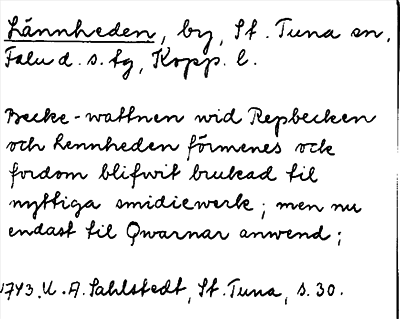 Lännheden, by, St. Tuna sn,
Falu d. s. tg, Kopp. l.
Becke-wattnen wid Repbecken
och Lennheden förmenes ock
fordom blifwit brukad til
nyttiga smidiewerk; men nu
endast til Qwarnar anwend;
1743. U. A. Sahlstedt, St. Tuna, s. 30.